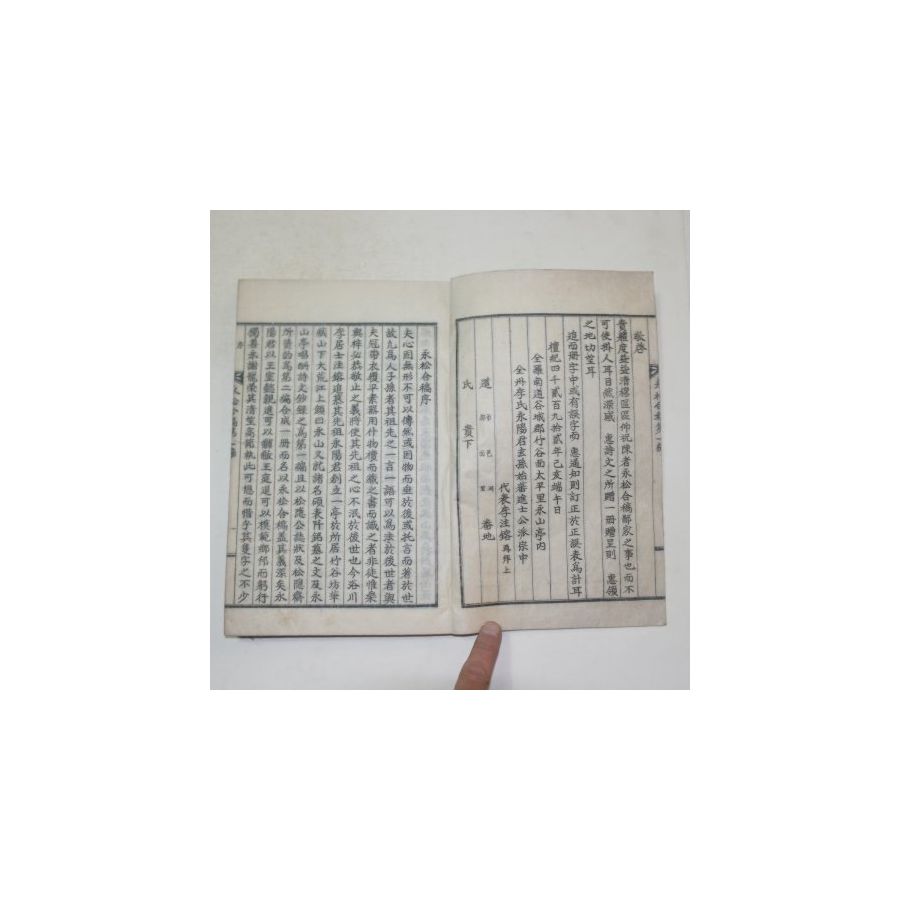 敬啓
貴體度益益淸穆區區仰祝陳者永松合稿鄙家之事也而不
可使掛人耳目然深感 惠詩文之所贈一册贈呈則 惠領
之地切望耳
追而册字中或有誤字而 惠通知則訂正於正誤表爲計耳
檀紀四千貳百九拾貳年己亥端午日
全羅南道谷城郡竹谷面太平里永山亭內
全州李氏永陽君玄孫始 進士公派保中
代表李注鎔 再拜上
道 郡 邑 面 里 番地
氏 貴下
永松合稿序
夫心固無形不可以傳然或因物而垂於後或托言而著於世
故凡爲人子孫者其祖先之一言一語可以爲法於後世者與
夫冠帶衣履平素器用什物 而藏之書而識之者非徒惟桑
與梓必恭敬止之義將使其先祖之心不泯於後世也今浴川
李居士注鎔追慕其先祖永陽君創立一亭於所居竹谷坊華
藏山下大荒江上顔曰永山又就諸名碩表阡銘墓之文及永
山亭唱酬詩文鈔錄之爲第一編且以松隱公誌狀及松隱齋
所 爲第二編合成一册而名以永松合稿盖其義深矣永
陽君以王室懿親進可以 王室退可以模範鄕邦而躬行
獨善永謝寵榮其淸 高 執此可想而惜乎其隻字之不少